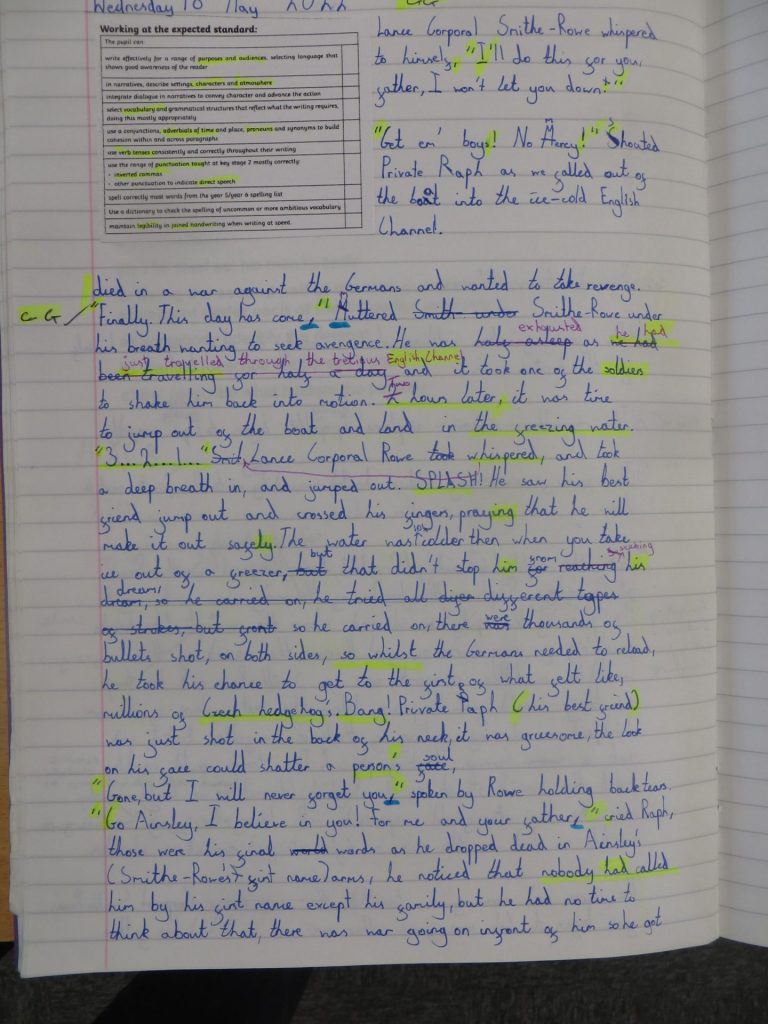 Wednesday 18 May 2022
Working at the expected standard:
The pupil can:
write effectively for a range of purposes and audiences, selecting language that
shows good awareness of the reader
in narratives, describe settings, characters and atmosphere
integrate dialogue in narratives to convey character and advance the action
select vocabulary and grammatical structures that reflect what the writing requires,
doing this mostly appropriately
use a conjunctions, adverbials of time and place, pronouns and synonyms to build
cohesion within and across paragraphs
use verb tenses consistently and correctly throughout their writing
use the range of punctuation taught at key stage 2 mostly correctly:
• inverted commas
• other punctuation to indicate direct speech
spell correctly most words from the year 5/year 6 spelling list
Use a dictionary to check the spelling of uncommon or more ambitious vocabulary
maintain legibility in joined handwriting when writing at speed.
Lance Corporal Smithe-Rowe whispered
to himself, "I'll do this for you,
father, I won't let you down!"
"Get em' boys! No Mercy!" Shouted
Private Raph as we called out of
the boat into the ice-cold English
Channel.
died in a war against the Germans and wanted to take revenge.
C-G "Finally. This day has come," Muttered Smith under Smithe-Rowe under
his breath wanting to seek avengence. He was half asleep exhausted as he had he had
just travelled through the English Channel
been travelling for half a day and it took one of the soldiers
to shake him back into motion. 2 Two hours later, it was time
to jump out of the boat and land in the freezing water.
"3... 2... 1..." Smit Lance Corporal Rowe took whispered, and took
a deep breath in, and jumped out. SPLASH! He saw his best
friend jump out and crossed his fingers, praying that he will
make it out safely. The water was colder then when you take
ice out of a freezer, but but that didn't stop him for from reaching his
dream
dream, so he carried on, he tried all different types
of strokes, but so he carried on, there was were thousands of
bullets shot, on both sides, so whilst the Germans needed to reload,
he took his chance to get to the first of what felt like,
millions of Czech hedgehog's. Bang! Private Raph (his best friend)
was just shot in the back of his neck, it was gruesome, the look
on his face could shatter a person's face soul,
"Gone, but I will never forget you," spoken by Rowe holding back tears.
"Go Ainsley, I believe in you! For me and your father," cried Raph,
those were his final world words as he dropped dead in Ainsley's
(Smithe-Rowe's first name) arms, he noticed that nobody had called
him by his first name except his family, but he had no time to
think about that, there was war going on infront of him so he got